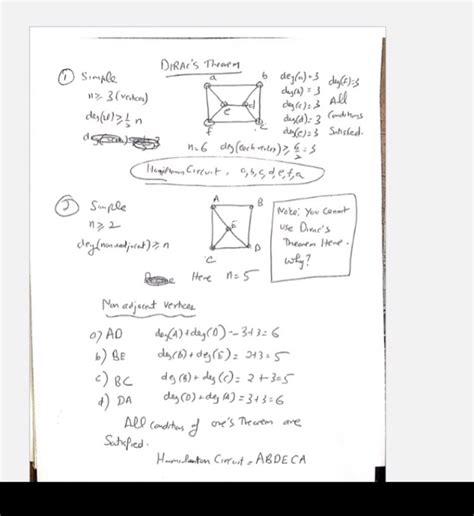 DIRAC's Theorem
① Simple
n ≥ 3 (vertices)
deg(v) ≥ ½ n
a b
e d
f c
deg(a) = 3 deg(f) = 3
deg(b) = 3 All
deg(c) = 3 Conditions
deg(d) = 3 Satisfied.
deg(e) = 3
n = 6 deg(each vertex) ≥ 6/2 = 3
Hamiltonian Circuit, a, b, c, d, e, f, a
② Simple
n ≥ 2
deg(nonadjacent) ≥ n
A B
E
C D
Note: You Cannot
use Dirac's
Theorem Here.
Why?
Here n = 5
Non adjacent Vertices
a) AD deg(A) + deg(D) = 3+3 = 6
b) BE deg(B) + deg(E) = 2+3 = 5
c) BC deg(B) + deg(C) = 2 + 3 = 5
d) DA deg(D) + deg(A) = 3+3 = 6
All conditions of ore's Theorem are
Satisfied.
Hamilton Circuit = ABDECA